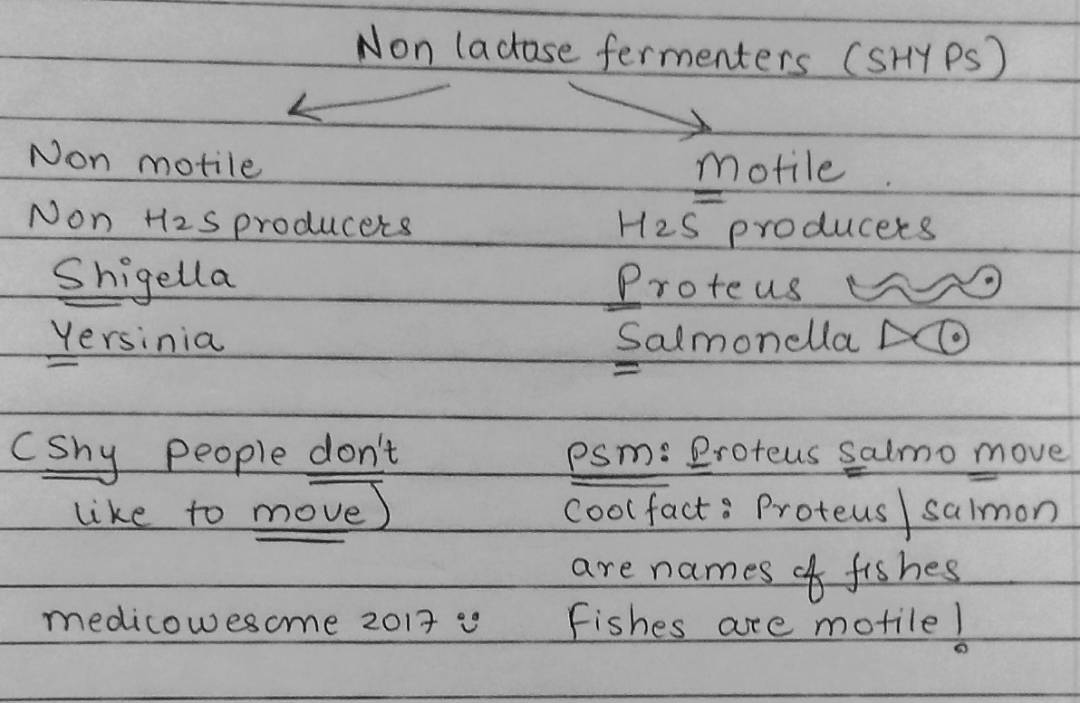 Non lactose fermenters (SHYPS)
Non motile
Non H2S producers
Shigella
Yersinia
(Shy people don't
like to move)
medicowesome 2017
Motile.
H2S producers
Proteus
Salmonella
PSM: Proteus Salmo move
Cool fact: Proteus / salmon
are names of fishes
Fishes are motile!